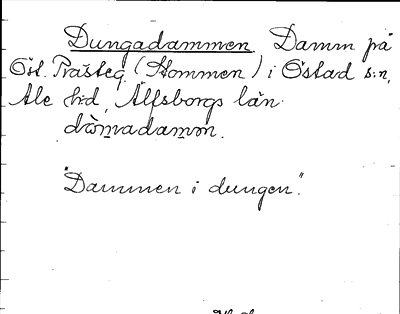 Dungadammen Damm på
Öst. Prästeg. (Stommen) i Östad s:n,
Ale h:d, Älfsborgs län.
"Dammen i dungen".